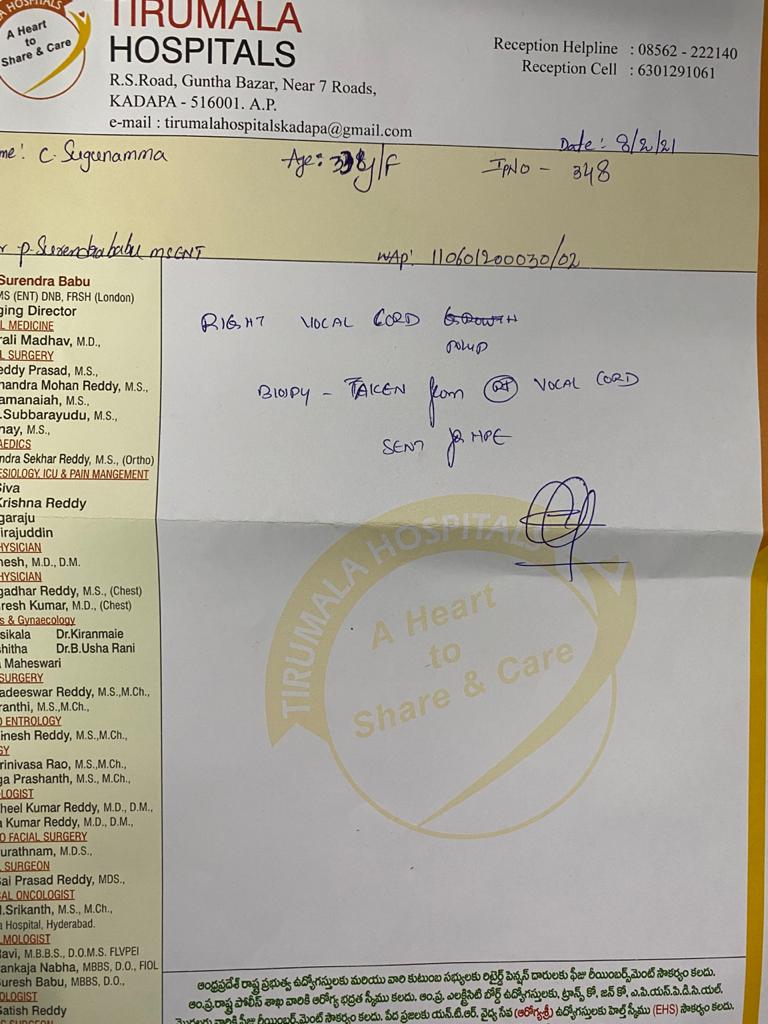 A HOSPITALS
A Heart
to
Share & Care
TIRUMALA
HOSPITALS
R.S.Road, Guntha Bazar, Near 7 Roads,
KADAPA - 516001. A.P.
e-mail : tirumalahospitalskadapa@gmail.com
Reception Helpline : 08562 - 222140
Reception Cell : 6301291061
Date: 8/2/21
me: C. Sugunamma
Age: 38y/F
IPNO - 348
r P. Surendrababu MSENT
WAP: 110601200030/02
Surendra Babu
MS (ENT) DNB, FRSH (London)
ging Director
L MEDICINE
rali Madhav, M.D.,
L SURGERY
eddy Prasad, M.S.,
handra Mohan Reddy, M.S.,
amanaiah, M.S.,
.Subbarayudu, M.S.,
nay, M.S.,
AEDICS
ndra Sekhar Reddy, M.S., (Ortho)
ESIOLOGY, ICU & PAIN MANGEMENT
Siva
Krishna Reddy
garaju
irajuddin
HYSICIAN
nesh, M.D., D.M.
HYSICIAN
gadhar Reddy, M.S., (Chest)
resh Kumar, M.D., (Chest)
s & Gynaecology
sikala Dr.Kiranmaie
shitha Dr.B.Usha Rani
Maheswari
SURGERY
adeeswar Reddy, M.S.,M.Ch.,
ranthi, M.S.,M.Ch.,
O ENTROLOGY
inesh Reddy, M.S.,M.Ch.,
GY
rinivasa Rao, M.S.,M.Ch.,
ga Prashanth, M.S., M.Ch.,
LOGIST
heel Kumar Reddy, M.D., D.M.,
a Kumar Reddy, M.D., D.M.,
O FACIAL SURGERY
urathnam, M.D.S.,
L SURGEON
Sai Prasad Reddy, MDS.,
CAL ONCOLOGIST
I.Srikanth, M.S., M.Ch.,
a Hospital, Hyderabad.
LMOLOGIST
Ravi, M.B.B.S., D.O.M.S. FLVPEI
ankaja Nabha, MBBS, D.O., FIOL
Suresh Babu, MBBS, D.O.,
OLOGIST
Satish Reddy
RIGHT VOCAL CORD GROWTH
POLYP
BIOPY - TAKEN from RT VOCAL CORD
SENT for HPE
TIRUMALA HOSPITALS
A Heart
to
Share & Care
ఆంధ్రప్రదేశ్ రాష్ట్ర ప్రభుత్వ ఉద్యోగస్తులకు మరియు వారి కుటుంబ సభ్యులకు రిటైర్డ్ పెన్షన్ దారులకు ఫీజు రీయింబర్స్‌మెంట్ సౌకర్యం కలదు.
ఆం.ప్ర.రాష్ట్ర పోలీస్ శాఖ వారికి ఆరోగ్య భద్రత స్కీము కలదు. ఆం.ప్ర. ఎలక్ట్రిసిటి బోర్డ్ ఉద్యోగస్తులకు, ట్రాన్స్ కో, జన్ కో, ఎ.పి.యస్.పి.డి.సి.యల్.
ఫీజు రీయింబర్స్‌మెంట్ సౌకర్యం కలదు. పేద ప్రజలకు యన్.టి.ఆర్. వైద్య సేవ (ఆరోగ్యశ్రీ) ఉద్యోగస్తులకు హెల్త్ స్కీము (EHS) సౌకర్యం కలదు.